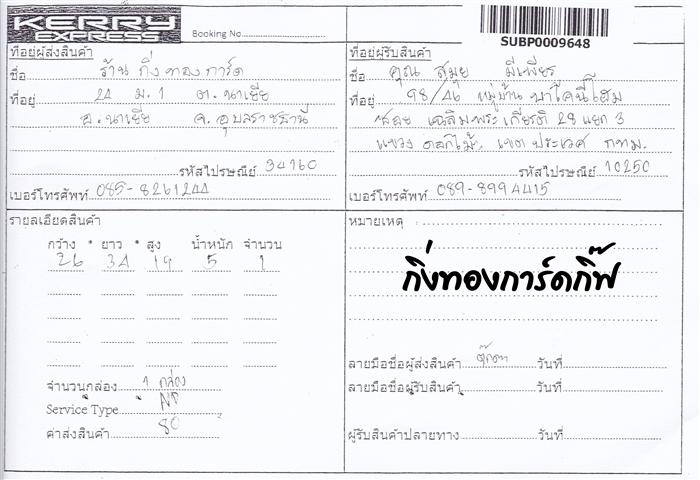 KERRY EXPRESS
Booking No.
SUBP0009648
ที่อยู่ผู้ส่งสินค้า
ชื่อ ร้าน กิ่งทองการ์ด
ที่อยู่ 24 ม.1 ต.นาเยีย
อ.นาเยีย จ.อุบลราชธานี
รหัสไปรษณีย์ 34160
เบอร์โทรศัพท์ 085-8261244
ที่อยู่ผู้รับสินค้า
ชื่อ คุณ สมุย มีเพียร
ที่อยู่ 98/46 หมู่บ้าน บาโคนี่โฮม
ซอย เฉลิมพระเกียรติ 28 แยก 3
แขวง ดอกไม้, เขต ประเวศ กทม.
รหัสไปรษณีย์ 10250
เบอร์โทรศัพท์ 089-8994415
รายละเอียดสินค้า
กว้าง * ยาว * สูง น้ำหนัก จำนวน
26 34 19 5 1
จำนวนกล่อง 1 กล่อง
Service Type ND
ค่าส่งสินค้า 80
หมายเหตุ
กิ่งทองการ์ดกิ๊ฟ
ลายมือชื่อผู้ส่งสินค้า ตุ๊กตา วันที่
ลายมือชื่อผู้รับสินค้า วันที่
ผู้รับสินค้าปลายทาง วันที่